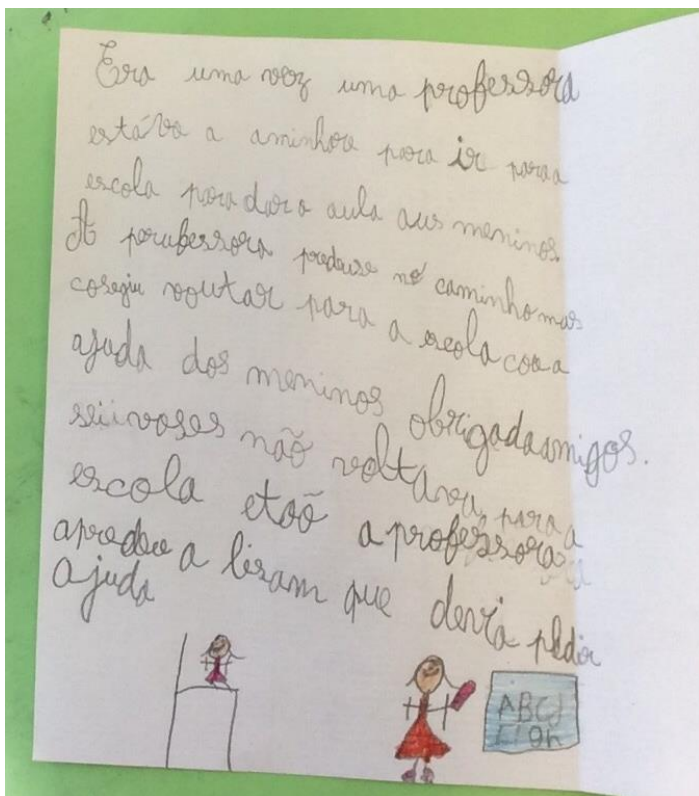 Era uma vez uma professora
estáva a aminhora para ir para a
escola para dar a aula aus meninos.
A perufessora predeuse no caminho mas
cosegiu voutar para a escola com a
ajuda dos meninos obrigada amigos.
sei voses não voltava para a
escola etoõ a professora
apredeu a lisam que devia pedir
ajuda
ABCJ